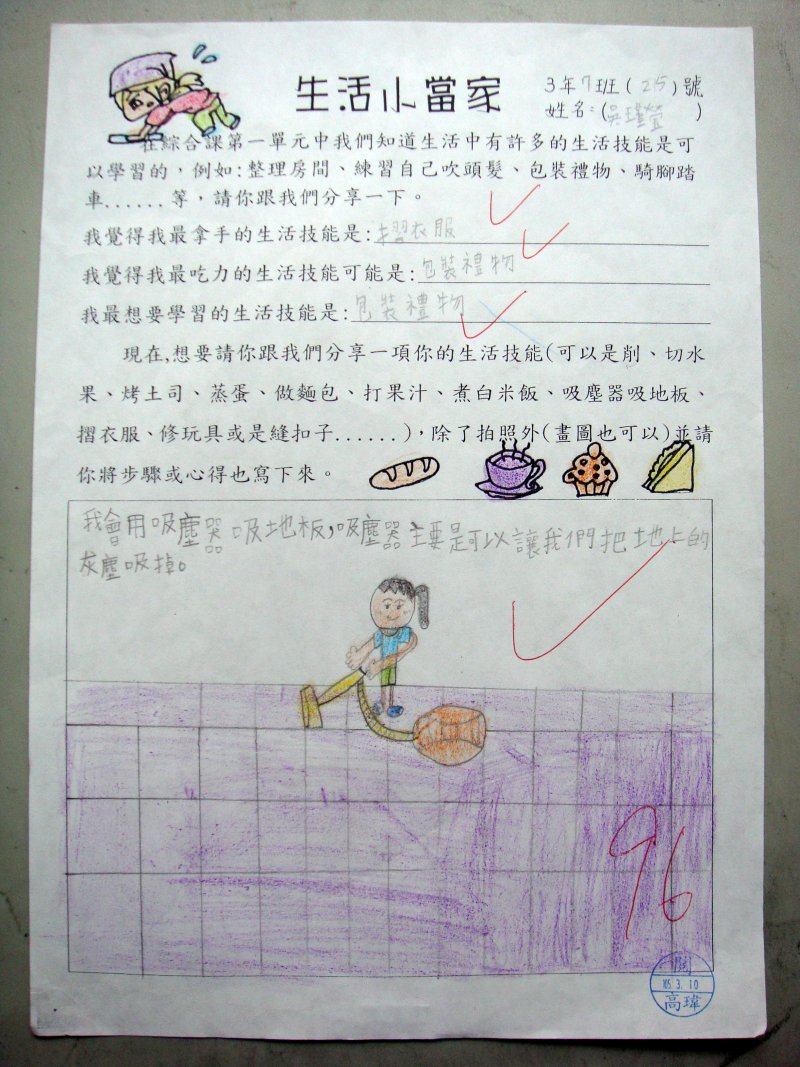 生活小當家
3年7班(25)號
姓名:(吳瑾瑩)
在綜合課第一單元中我們知道生活中有許多的生活技能是可
以學習的,例如:整理房間、練習自己吹頭髮、包裝禮物、騎腳踏
車......等,請你跟我們分享一下。
我覺得我最拿手的生活技能是:摺衣服
我覺得我最吃力的生活技能可能是:包裝禮物
我最想要學習的生活技能是:包裝禮物
現在,想要請你跟我們分享一項你的生活技能(可以是削、切水
果、烤土司、蒸蛋、做麵包、打果汁、煮白米飯、吸塵器吸地板、
摺衣服、修玩具或是縫扣子......),除了拍照外(畫圖也可以)並請
你將步驟或心得也寫下來。
我會用吸塵器吸地板,吸塵器主要是可以讓我們把地上的
灰塵吸掉。
96
閱
105.3.10
高瑋